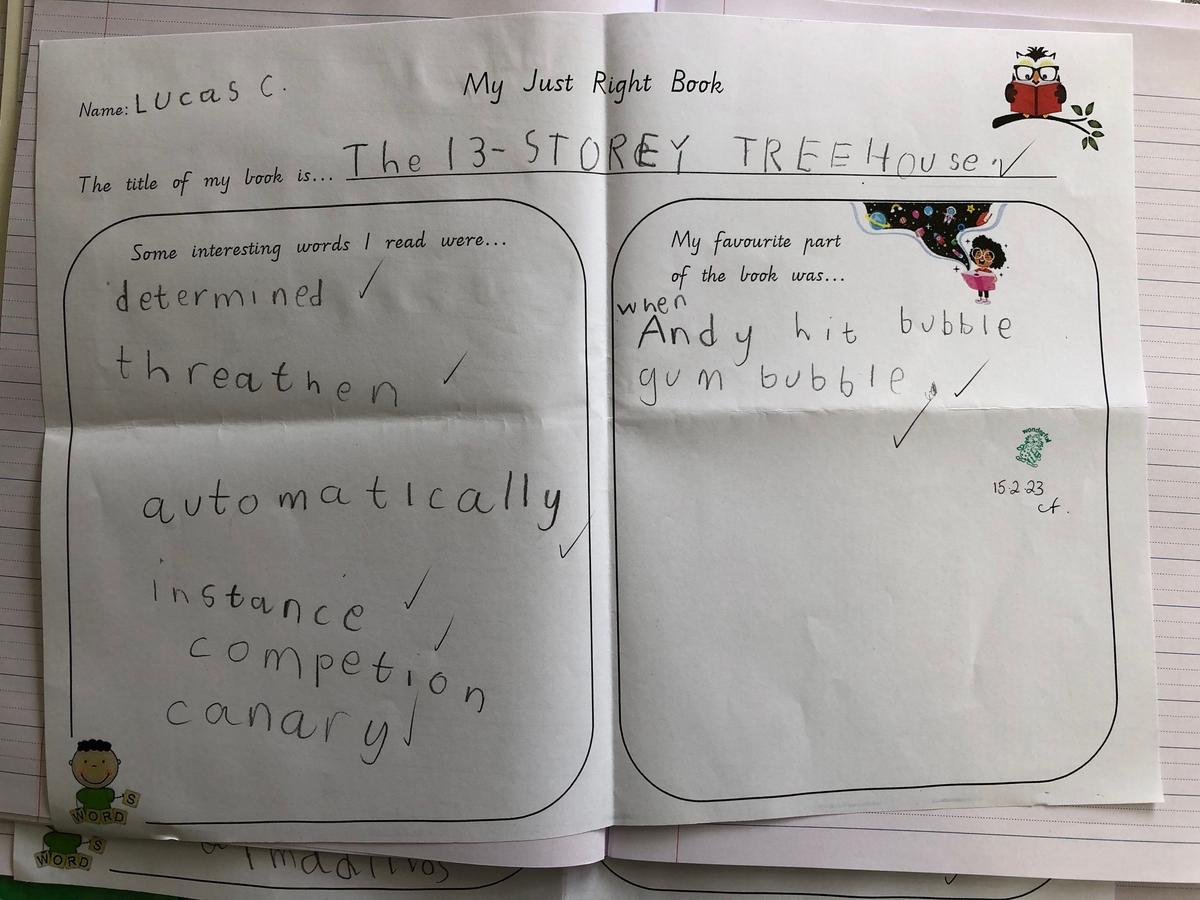 My Just Right Book
Name: Lucas C.
The title of my book is... The 13-STOREY TREEHOuse.
Some interesting words I read were...
determined
threathen
automatically
instance
competion
canary
My favourite part
of the book was...
when
Andy hit bubble
gum bubble.
wonderful
15.2.23
WORD
S
WORD
S